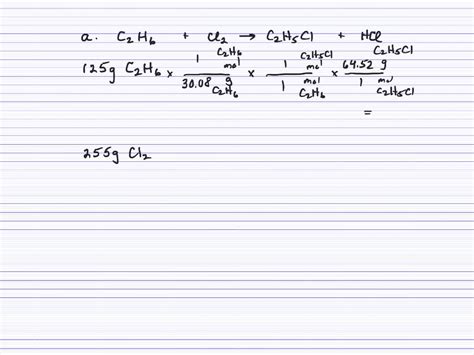 a. C₂H₆ + Cl₂ → C₂H₅Cl + HCl
125g C₂H₆ × 1 mol C₂H₆ / 30.08 g C₂H₆ × 1 mol C₂H₅Cl / 1 mol C₂H₆ × 64.52 g C₂H₅Cl / 1 mol C₂H₅Cl
=
255g Cl₂